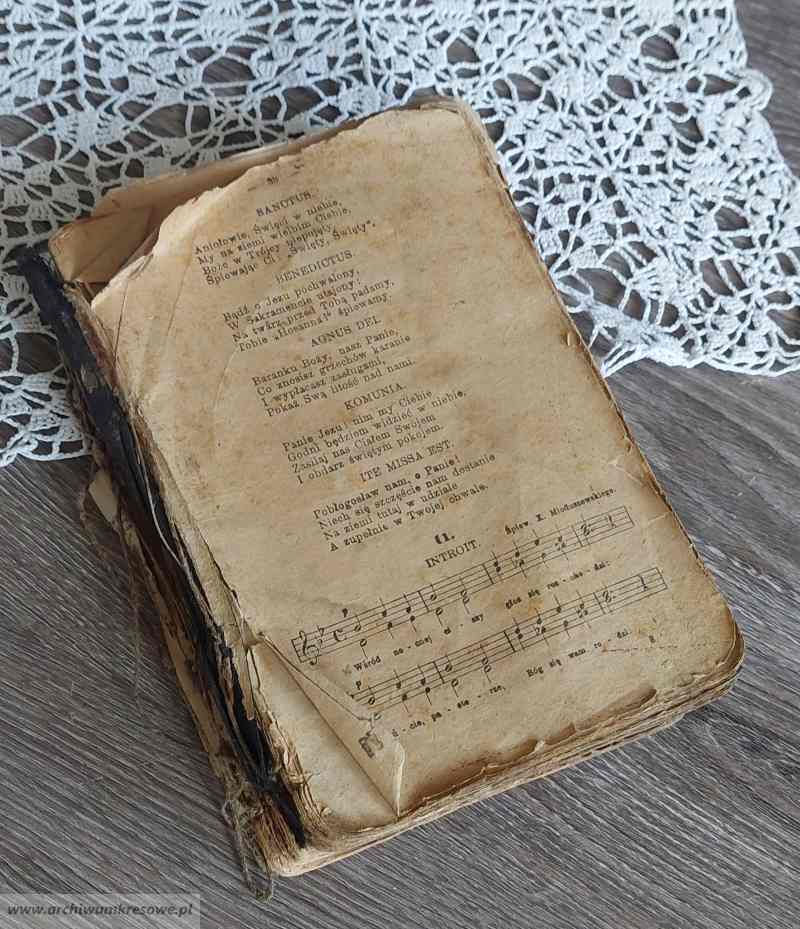 SANCTUS.
Aniołowie, Święci w niebie,
My na ziemi wielbim Ciebie,
Boże w Trójcy pojęty,
Śpiewając Ci: „Święty, Święty“.
BENEDICTUS.
Bądź o Jezu pochwalony,
W Sakramencie utajony!
Na twarz przed Tobą padamy,
Tobie „Hosanna!“ śpiewamy.
AGNUS DEI.
Baranku Boży, nasz Panie,
Co znosisz grzechów karanie
I wypłacasz zasługami,
Pokaż Swą litość nad nami.
KOMUNIA.
Panie Jezu! nim my Ciebie
Godni będziem widzieć w niebie,
Zasilaj nas Ciałem Swojem
I obdarz świętym pokojem.
ITE MISSA EST.
Pobłogosław nam, o Panie!
Niech się szczęście nam dostanie
Na ziemi tutaj w udziale
A zupełnie w Twojej chwale.
11.
INTROIT.
Śpiew. X. Mioduszewskiego.
p
Wśród no - cnej ci - szy głos się roz - cho - dzi:
p
ś - cie, pa - ste - rze, Bóg się wam ro - dzi
www.archiwumkresowe.pl